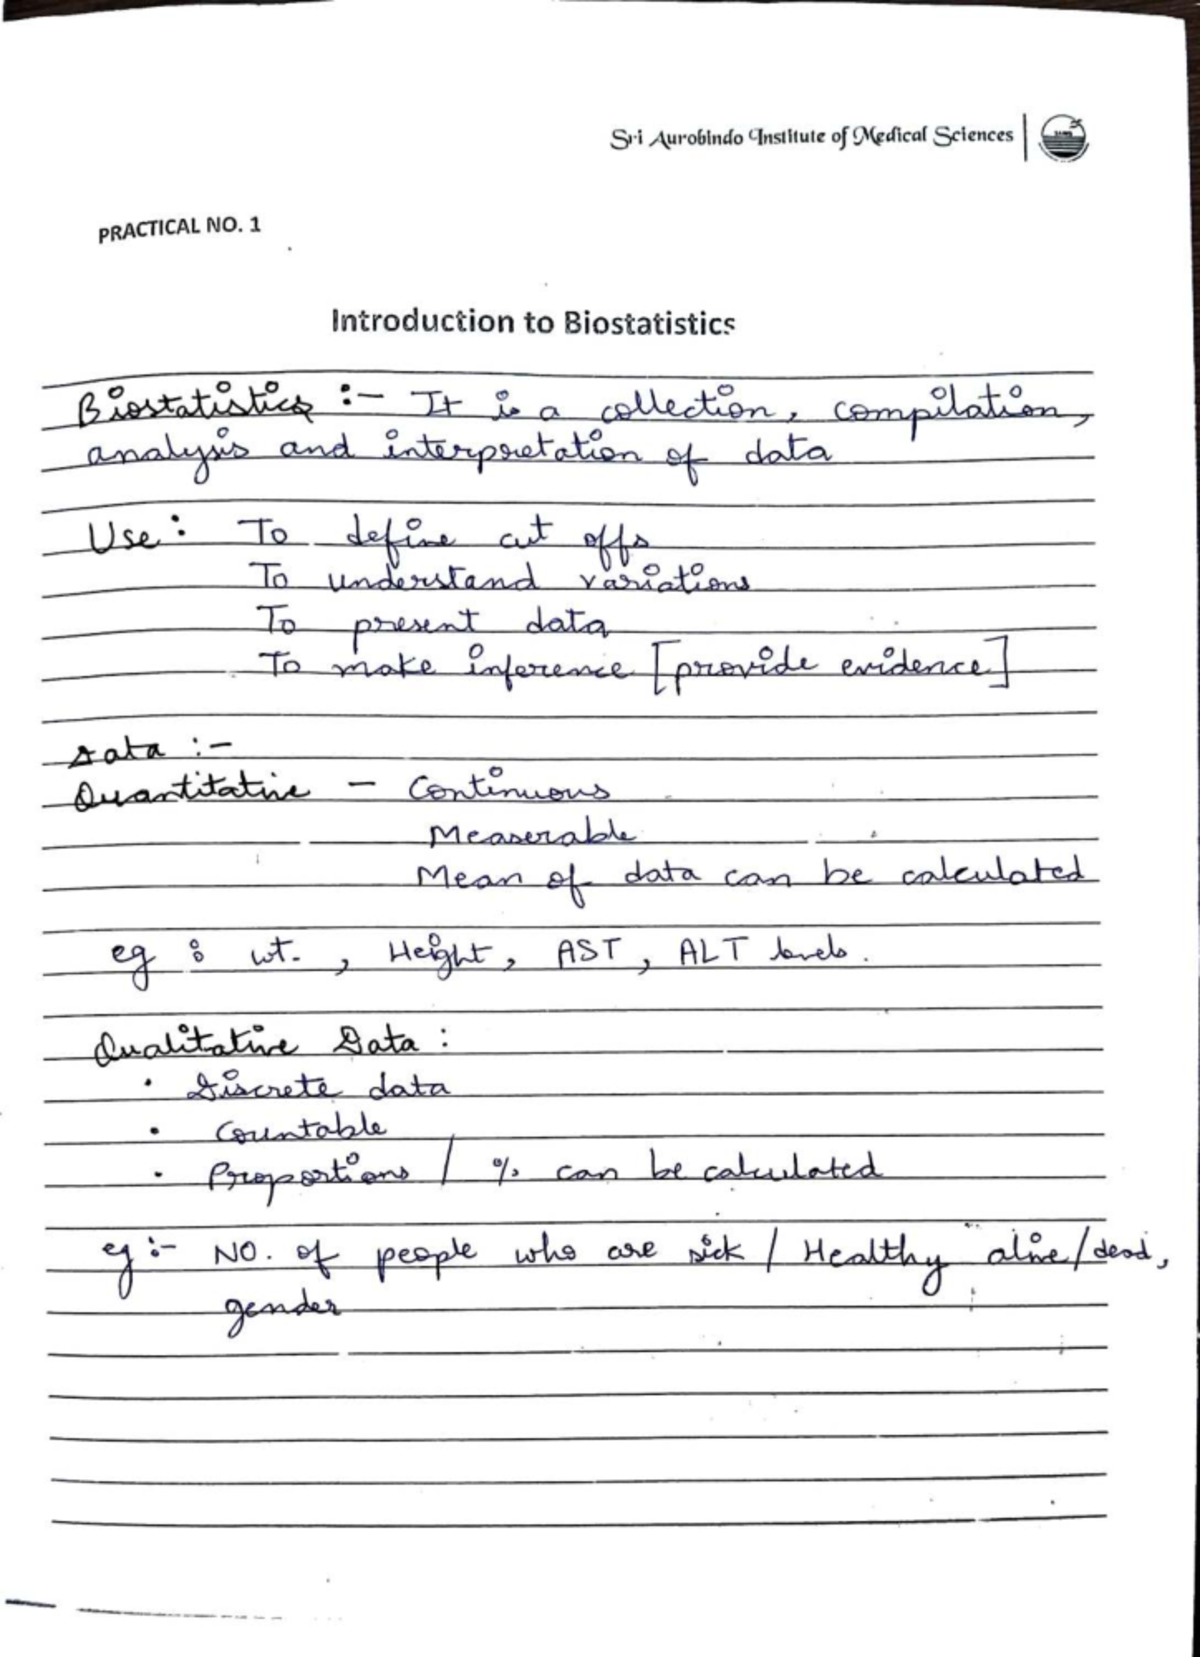 Sri Aurobindo Institute of Medical Sciences
PRACTICAL NO. 1
Introduction to Biostatistics
Biostatistics :- It is a collection, compilation,
analysis and interpretation of data
Use : To define cut offs
To understand variations
To present data
To make inference [provide evidence]
Data :-
Quantitative - Continuous
Measerable
Mean of data can be calculated
eg : wt. , Height, AST, ALT levels.
Qualitative Data :
• Discrete data
• Countable
• Proportions / % can be calculated
eg :- NO. of people who are sick / Healthy alive/dead,
gender